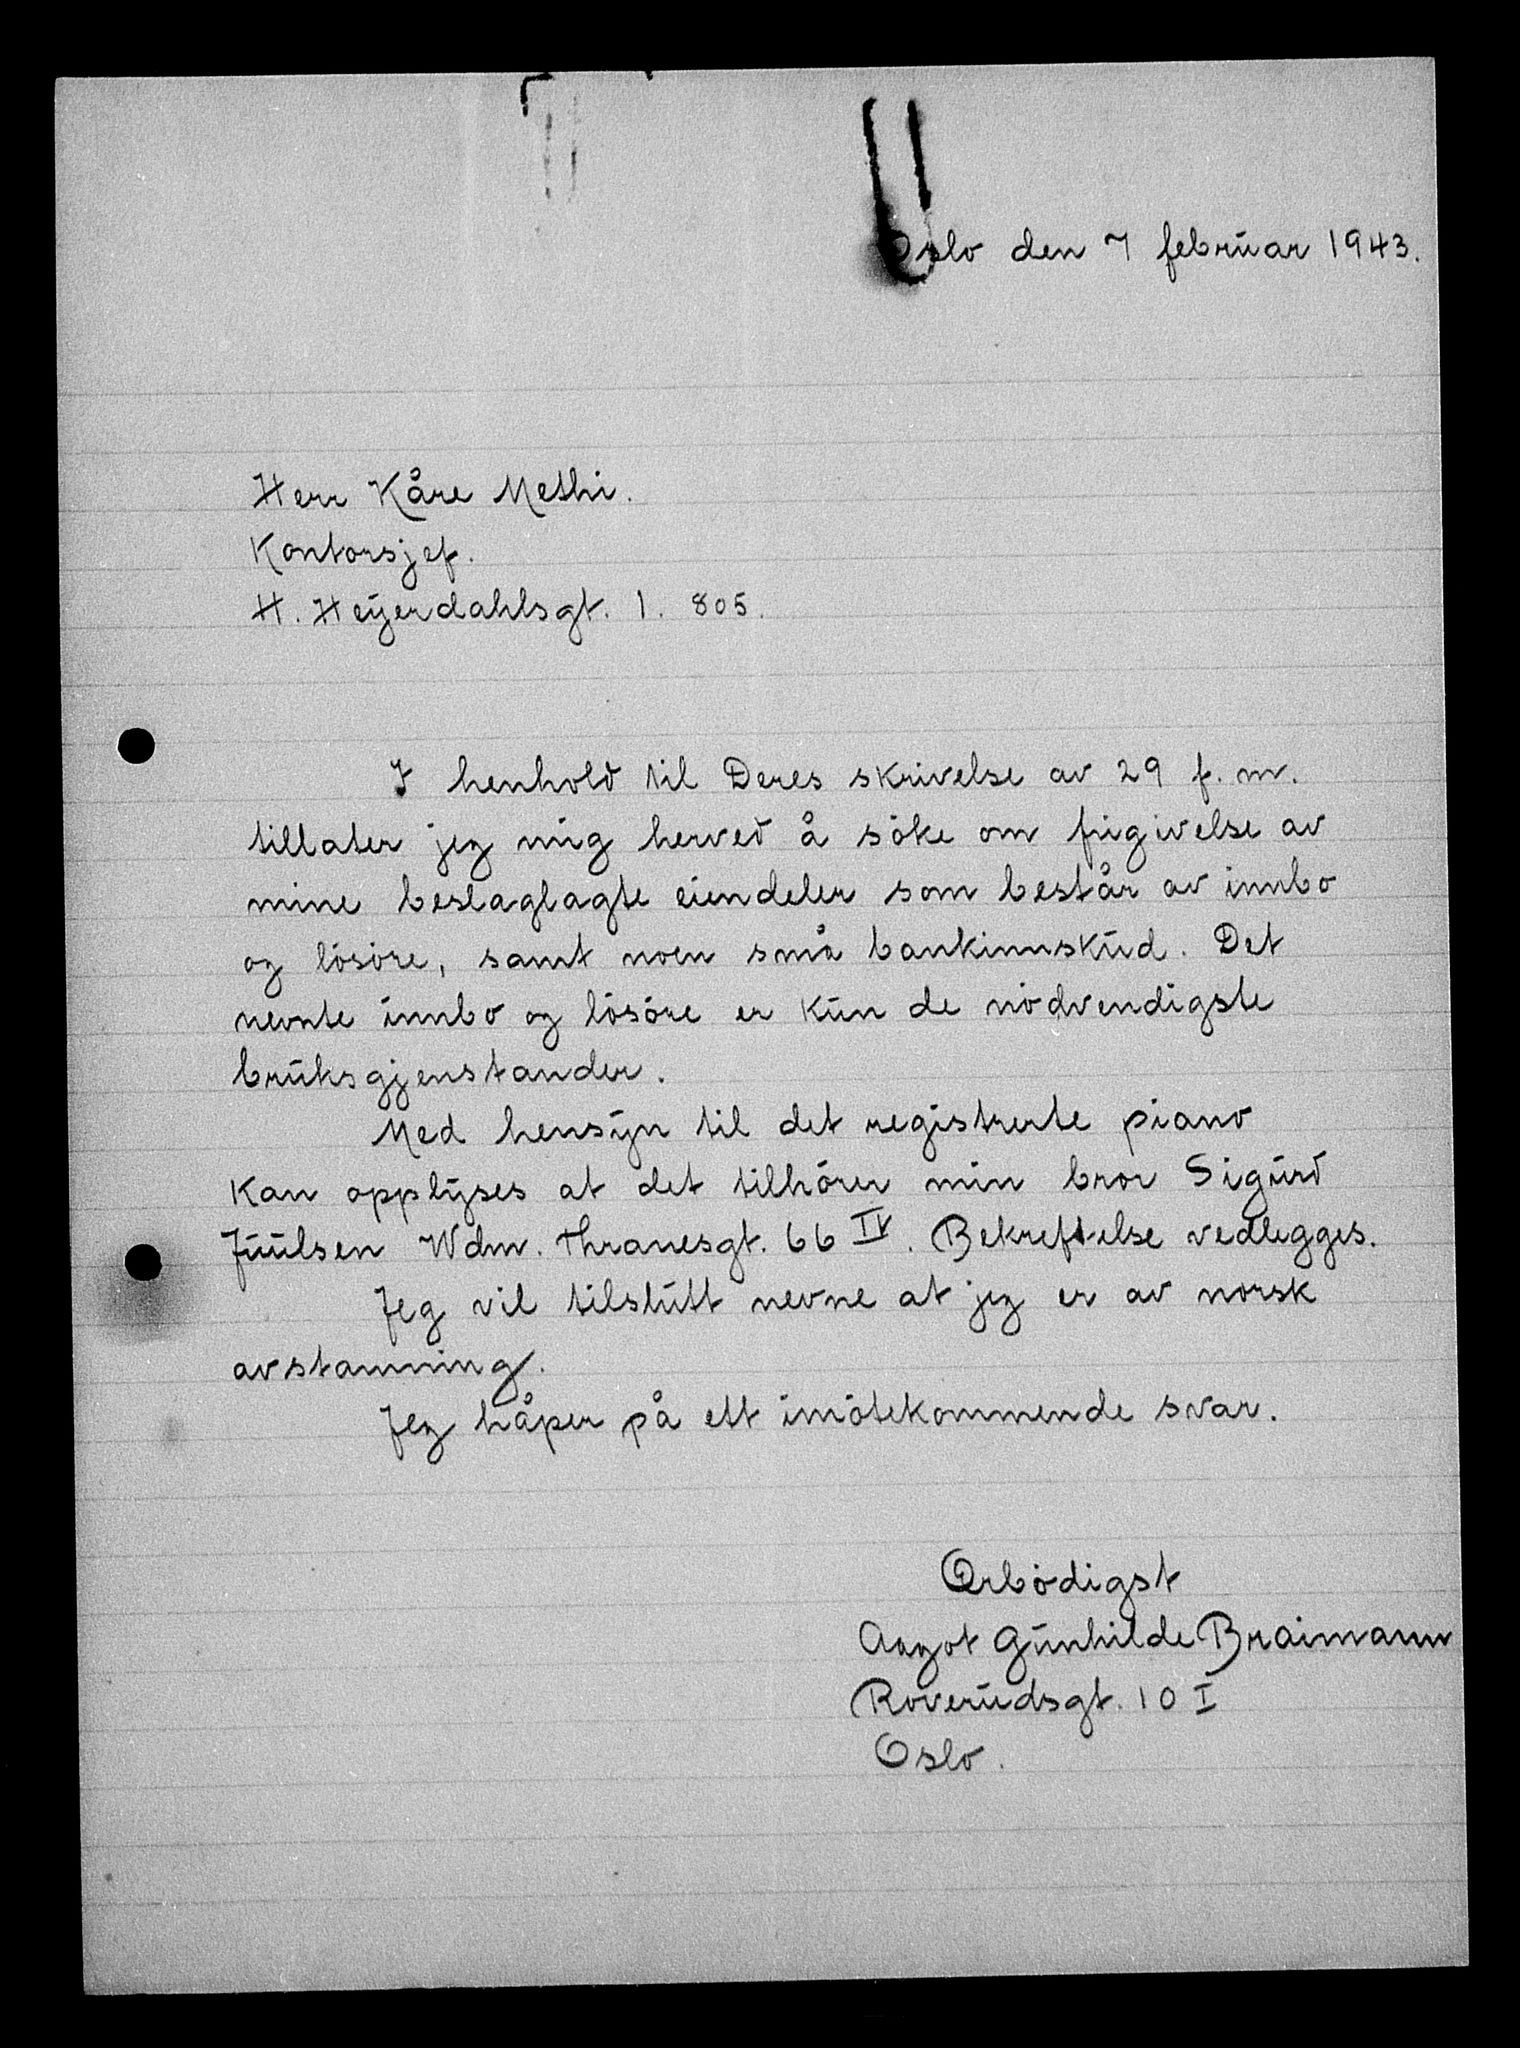 Oslo den 7 februar 1943.
Herr Kåre Methi.
Kontorsjef.
H. Heyerdahlsgt. 1. 805.
I henhold til Deres skrivelse av 29 f. m.
tillater jeg mig herved å söke om frigivelse av
mine beslaglagte eiendeler som består av innbo
og lösöre, samt noen små bankinnskud. Det
nevnte innbo og lösöre er kun de nödvendigste
bruksgjenstander.
Med hensyn til det registrerte piano
kan opplyses at det tilhörer min bror Sigurd
Juulsen Wdm. Thranesgt. 66 IV. Bekreftelse vedlegges.
Jeg vil tilslutt nevne at jeg er av norsk
avstamning.
Jeg håper på ett imötekommende svar.
Ærbödigst
Aagot Gunhilde Braimann
Roverudsgt. 10 I
Oslo.